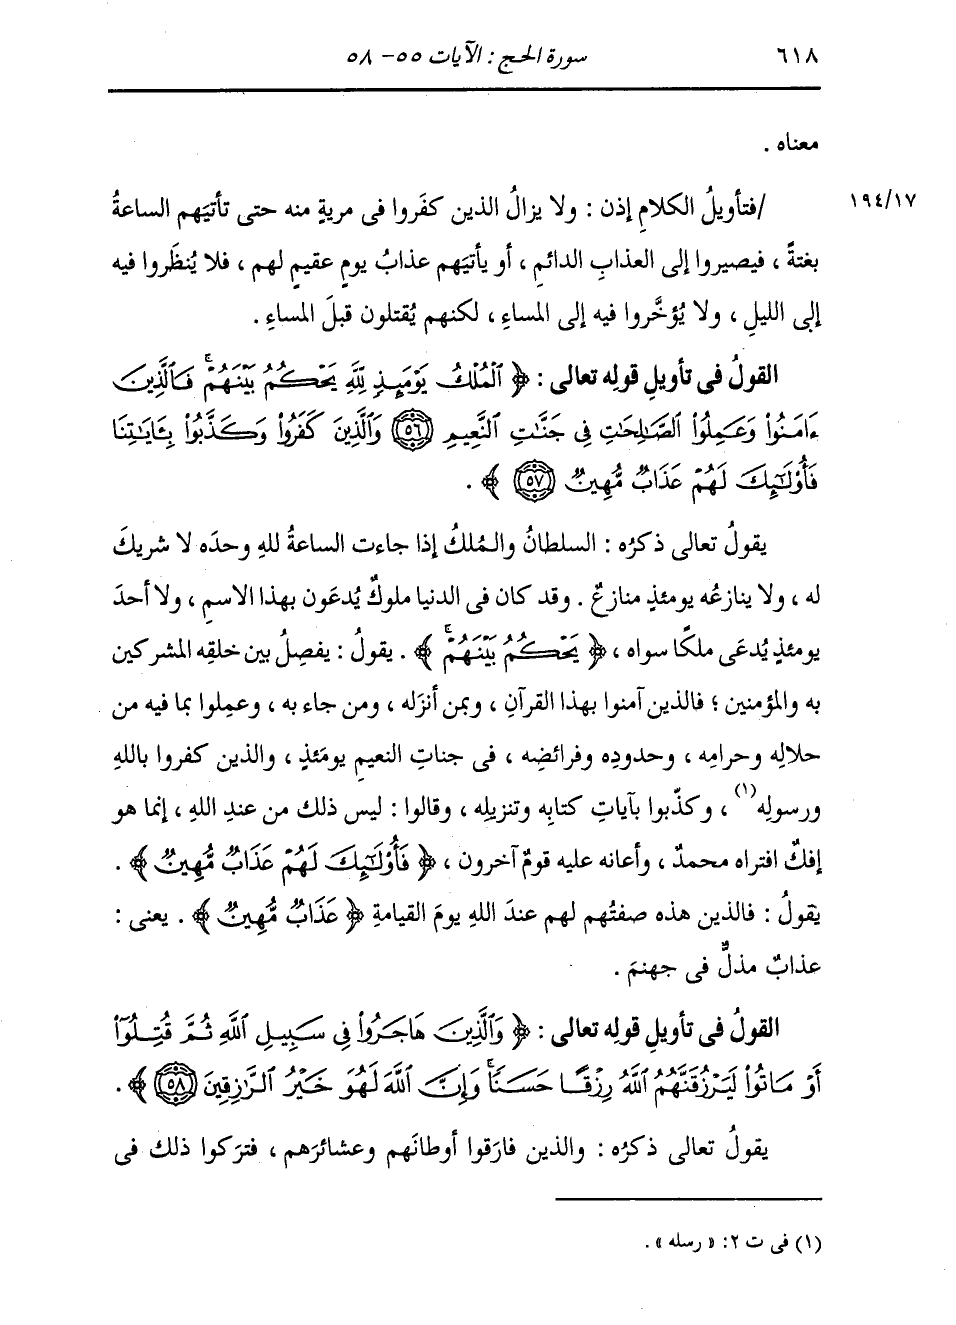 ٦١٨ سورة الحج : الآيات ٥٥- ٥٨
معناه .
١٩٤/١٧ /فتأويلُ الكلامِ إذن : ولا يزالُ الذين كفَروا فى مريةٍ منه حتى تأتيَهم الساعةُ
بغتةً ، فيصيروا إلى العذابِ الدائمِ ، أو يأتيَهم عذابُ يومٍ عقيمٍ لهم ، فلا يُنظَروا فيه
إلى الليلِ ، ولا يُؤخَّروا فيه إلى المساءِ ، لكنهم يُقتلون قبلَ المساءِ .
القولُ فى تأويلِ قولِه تعالى : ﴿ ٱلْمُلْكُ يَوْمَئِذٍ لِلَّهِ يَحْكُمُ بَيْنَهُمْ ۚ فَٱلَّذِينَ
ءَامَنُواْ وَعَمِلُواْ ٱلصَّٰلِحَٰتِ فِى جَنَّٰتِ ٱلنَّعِيمِ ٥٦ وَٱلَّذِينَ كَفَرُواْ وَكَذَّبُواْ بِـَٔايَٰتِنَا
فَأُوْلَٰٓئِكَ لَهُمْ عَذَابٌ مُّهِينٌ ٥٧ ﴾ .
يقولُ تعالى ذكرُه : السلطانُ والمُلكُ إذا جاءت الساعةُ للهِ وحدَه لا شريكَ
له ، ولا ينازعُه يومئذٍ منازعٌ . وقد كان فى الدنيا ملوكٌ يُدعَون بهذا الاسمِ ، ولا أحدَ
يومئذٍ يُدعَى ملكًا سواه ، ﴿ يَحْكُمُ بَيْنَهُمْ ۚ ﴾ . يقولُ : يفصِلُ بين خلقِه المشركين
به والمؤمنين ؛ فالذين آمنوا بهذا القرآنِ ، وبمن أنزَله ، ومن جاء به ، وعمِلوا بما فيه من
حلالِه وحرامِه ، وحدودِه وفرائضِه ، فى جناتِ النعيمِ يومَئذٍ ، والذين كفروا باللهِ
ورسولِه(١) ، وكذّبوا بآياتِ كتابِه وتنزيلِه ، وقالوا : ليس ذلك من عندِ اللهِ ، إنما هو
إفكٌ افتراه محمدٌ ، وأعانه عليه قومٌ آخرون ، ﴿ فَأُوْلَٰٓئِكَ لَهُمْ عَذَابٌ مُّهِينٌ ﴾ .
يقولُ : فالذين هذه صفتُهم لهم عندَ اللهِ يومَ القيامةِ ﴿ عَذَابٌ مُّهِينٌ ﴾ . يعنى :
عذابٌ مذلٌّ فى جهنمَ .
القولُ فى تأويلِ قولِه تعالى : ﴿ وَٱلَّذِينَ هَاجَرُواْ فِى سَبِيلِ ٱللَّهِ ثُمَّ قُتِلُوٓاْ
أَوْ مَاتُواْ لَيَرْزُقَنَّهُمُ ٱللَّهُ رِزْقًا حَسَنًا ۚ وَإِنَّ ٱللَّهَ لَهُوَ خَيْرُ ٱلرَّٰزِقِينَ ٥٨ ﴾ .
يقولُ تعالى ذكرُه : والذين فارَقوا أوطانَهم وعشائرَهم ، فترَكوا ذلك فى
(١) فى ت ٢: « رسله » .